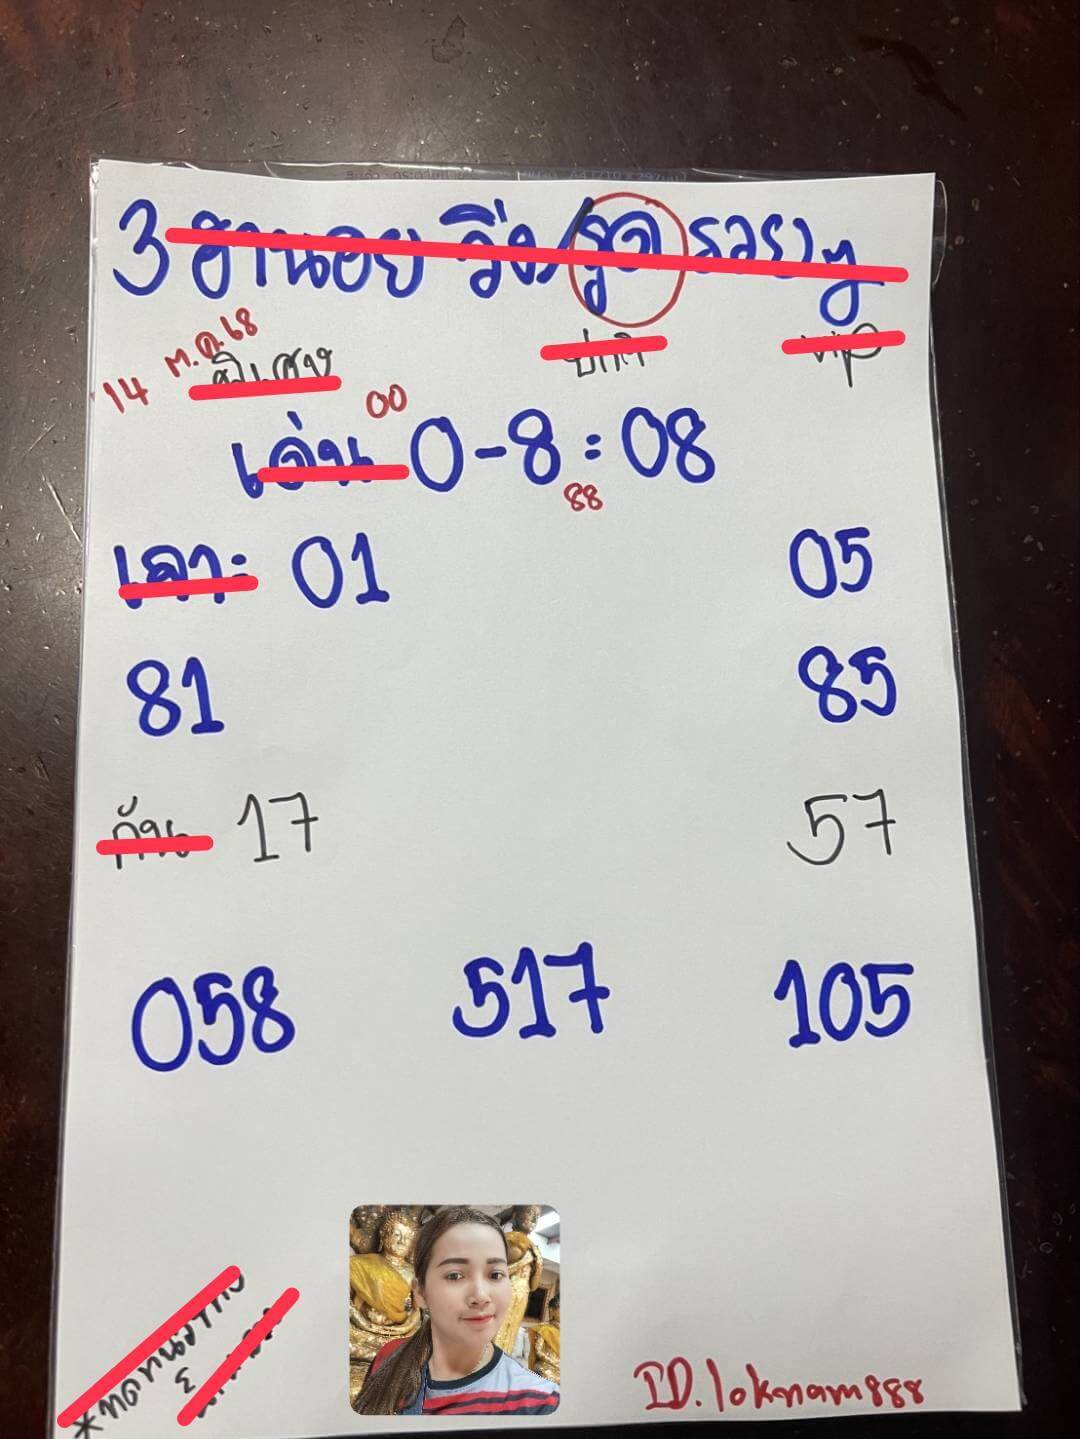 3 ฮานอย วิ่ง/รูด รวยๆ
14 ต.ค.68
พิเศษ ปกติ vip
00
เด่น 0-8 = 08
88
เจาะ 01 05
81 85
กัน 17 57
058 517 105
I D. loknam888